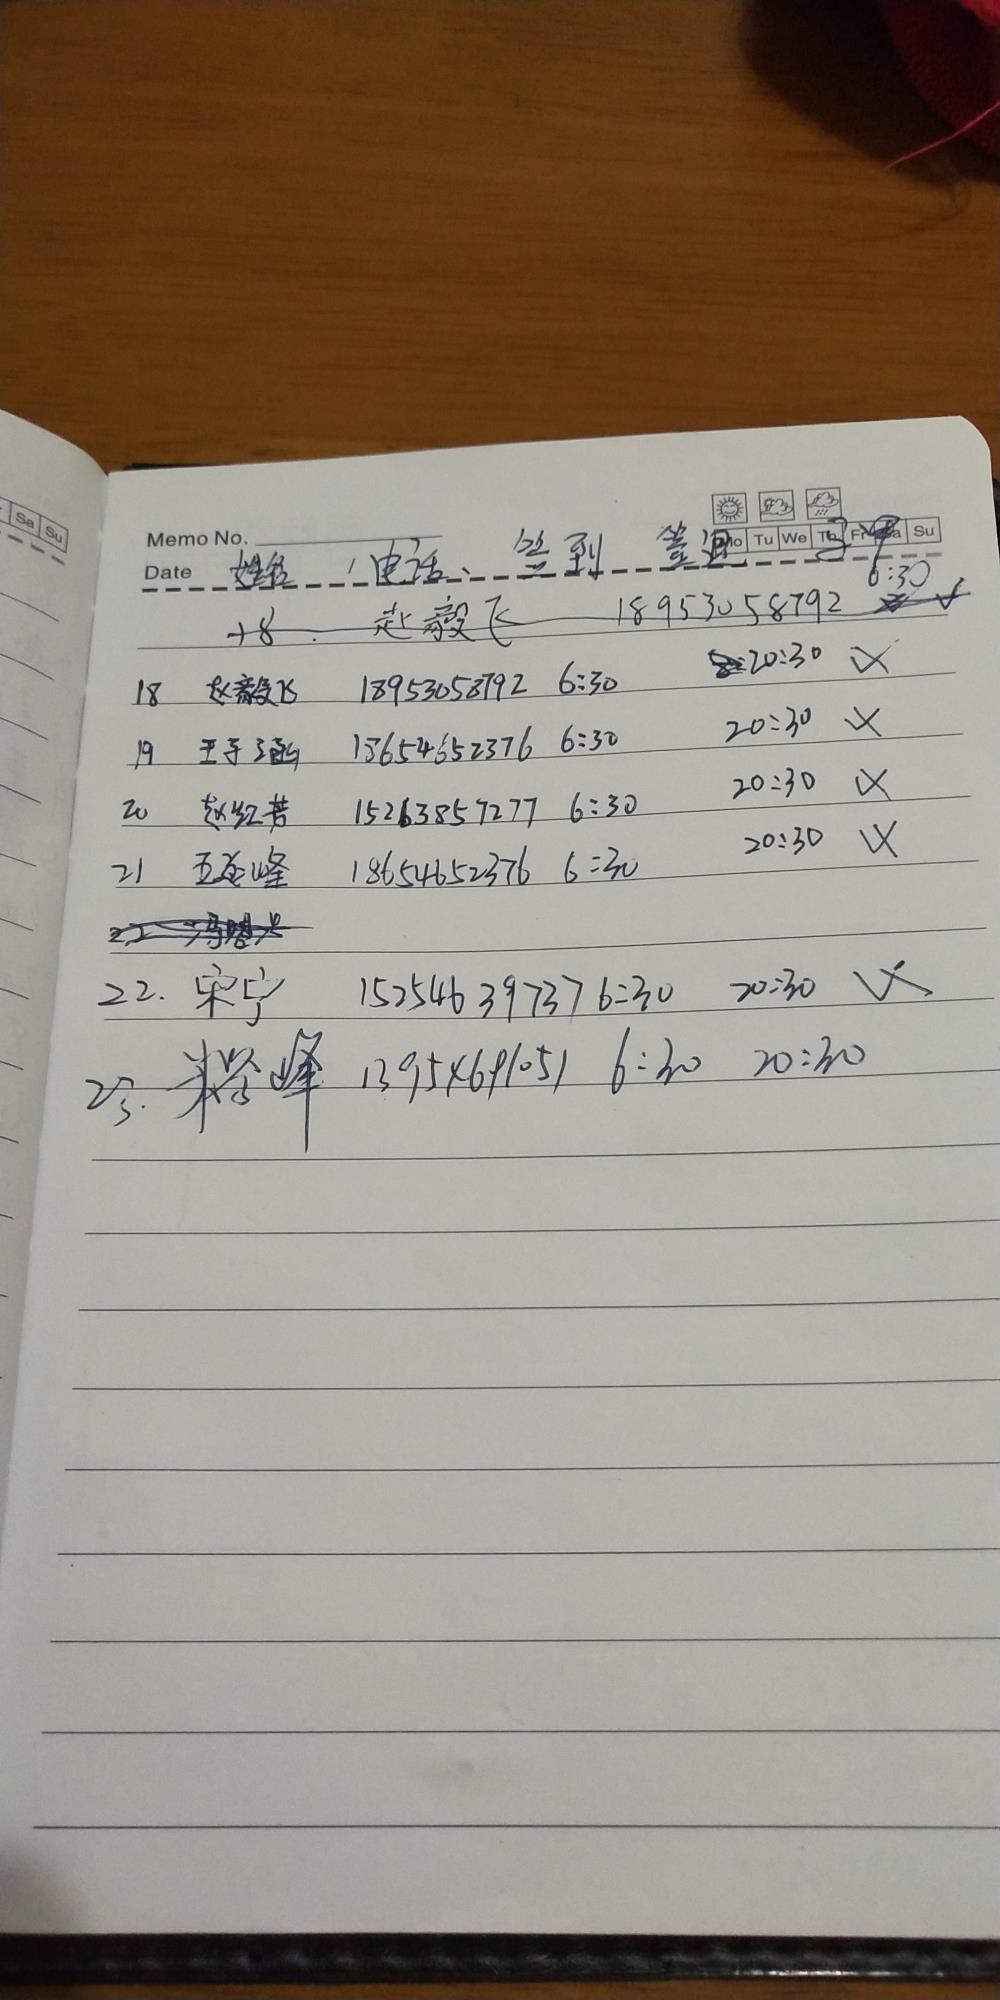 Sa Su
Memo No.
Mo Tu We Th Fr Sa Su
Date 姓名 电话 签到 签退
6:30
18. 赵毅飞 18953058792
18 赵毅飞 18953058792 6:30 20:30
19 王子涵 13654652376 6:30 20:30
20 赵红芳 15263857277 6:30 20:30
21 峰 18654652376 6:30 20:30
22. 宋宁 15254639737 6:30 20:30
23. 峰 13954691051 6:30 20:30